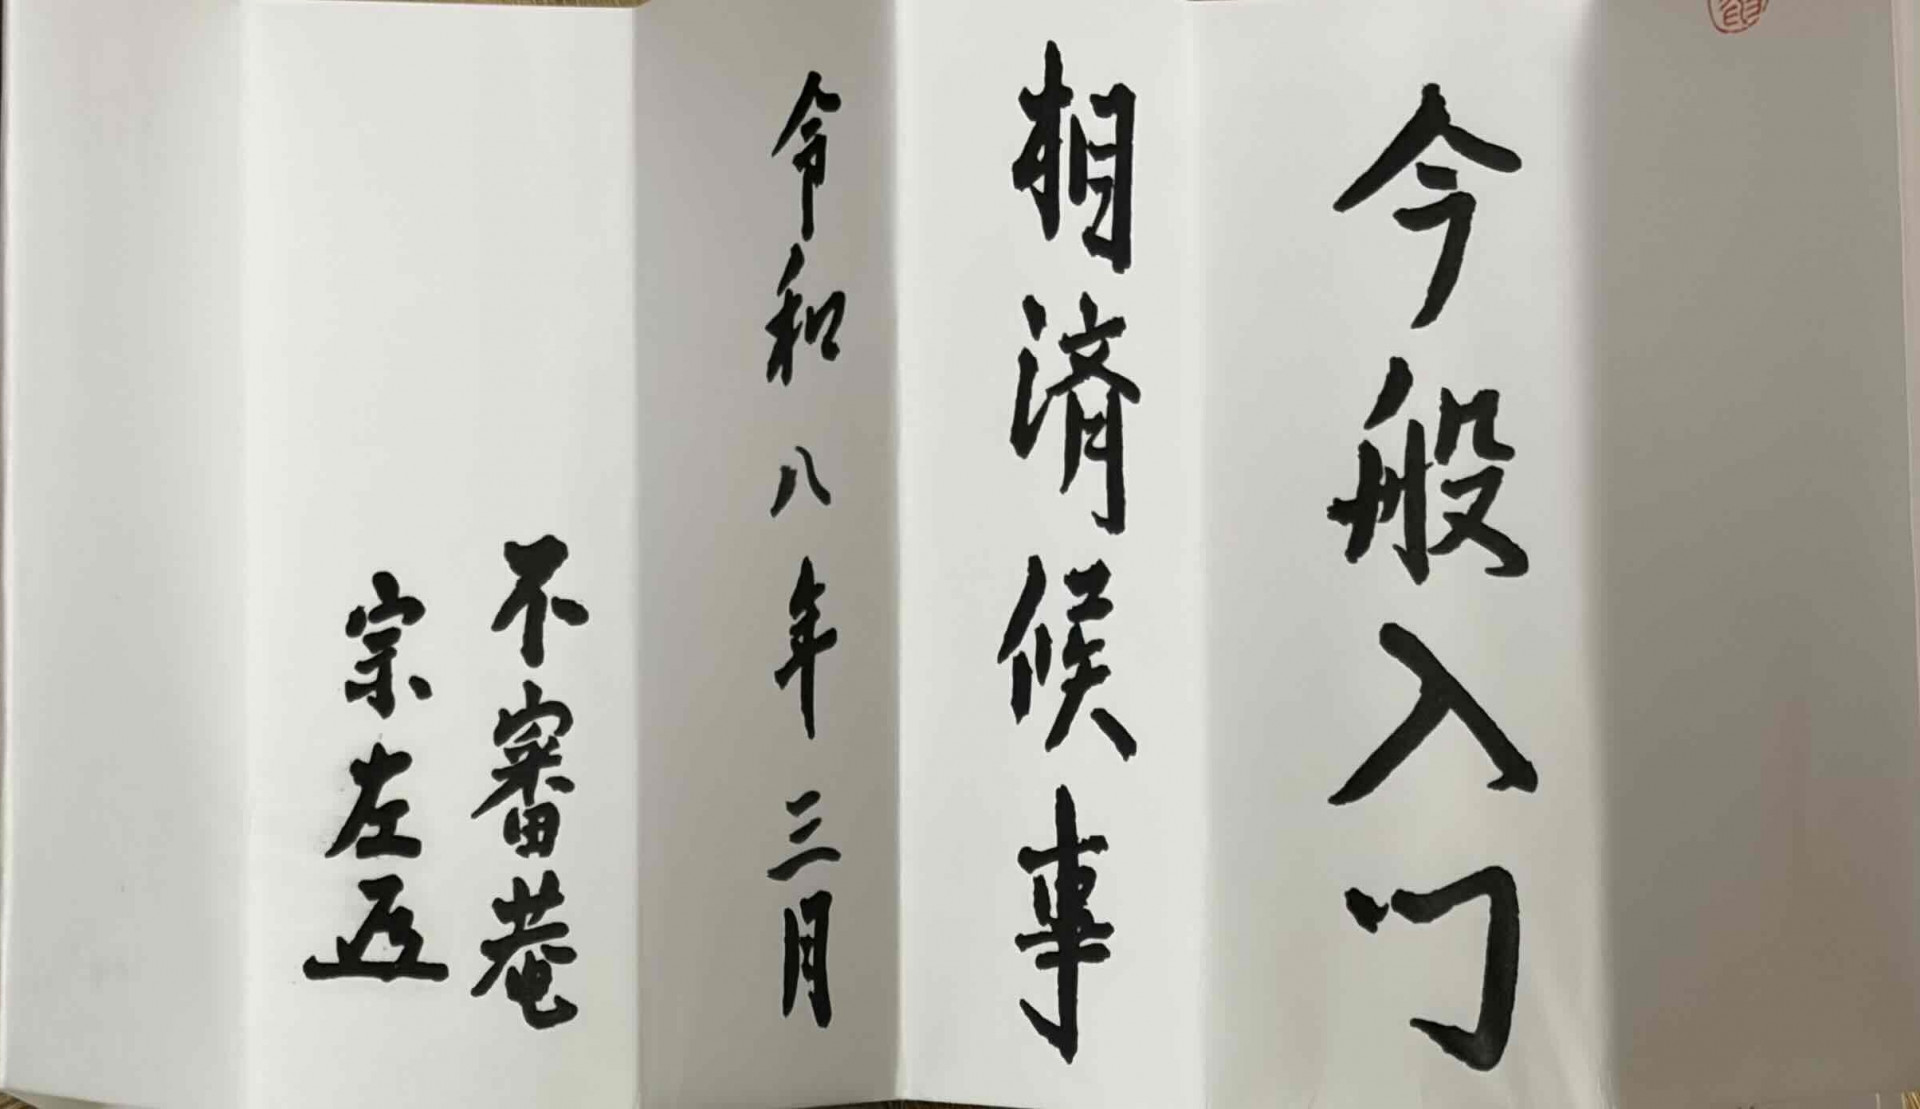 今般入門
相済候事
令和八年三月
不審菴
宗左